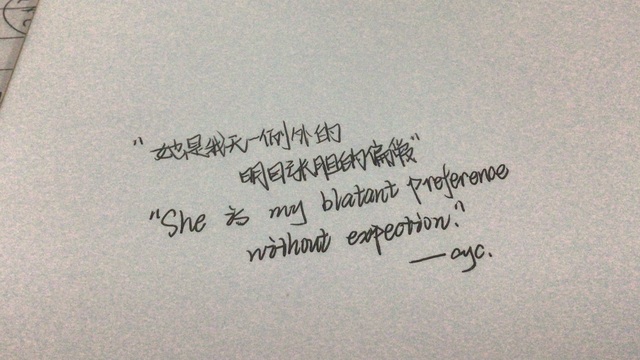 "她是我无一例外的
明目张胆的偏爱"
"She is my blatant preference
without expection."
—cyc.